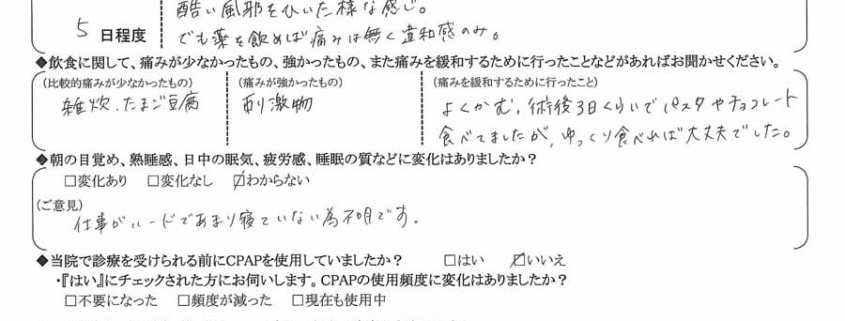 酷い風邪をひいた様な感じ。
5 日程度
でも薬を飲めば痛みは無く違和感のみ。
◆飲食に関して、痛みが少なかったもの、強かったもの、また痛みを緩和するために行ったことなどがあればお聞かせください。
(比較的痛みが少なかったもの) (痛みが強かったもの) (痛みを緩和するために行ったこと)
雑炊.たまご豆腐 刺激物 よくかむ。術後3日くらいでパスタやチョコレート
食べてましたが、ゆっくり食べれば大丈夫でした。
◆朝の目覚め、熟睡感、日中の眠気、疲労感、睡眠の質などに変化はありましたか?
□変化あり □変化なし ☑わからない
(ご意見)
仕事がハードであまり寝ていない為不明です.
◆当院で診療を受けられる前にCPAPを使用していましたか? □はい ☑いいえ
・『はい』にチェックされた方にお伺いします。CPAPの使用頻度に変化はありましたか?
□不要になった □頻度が減った □現在も使用中